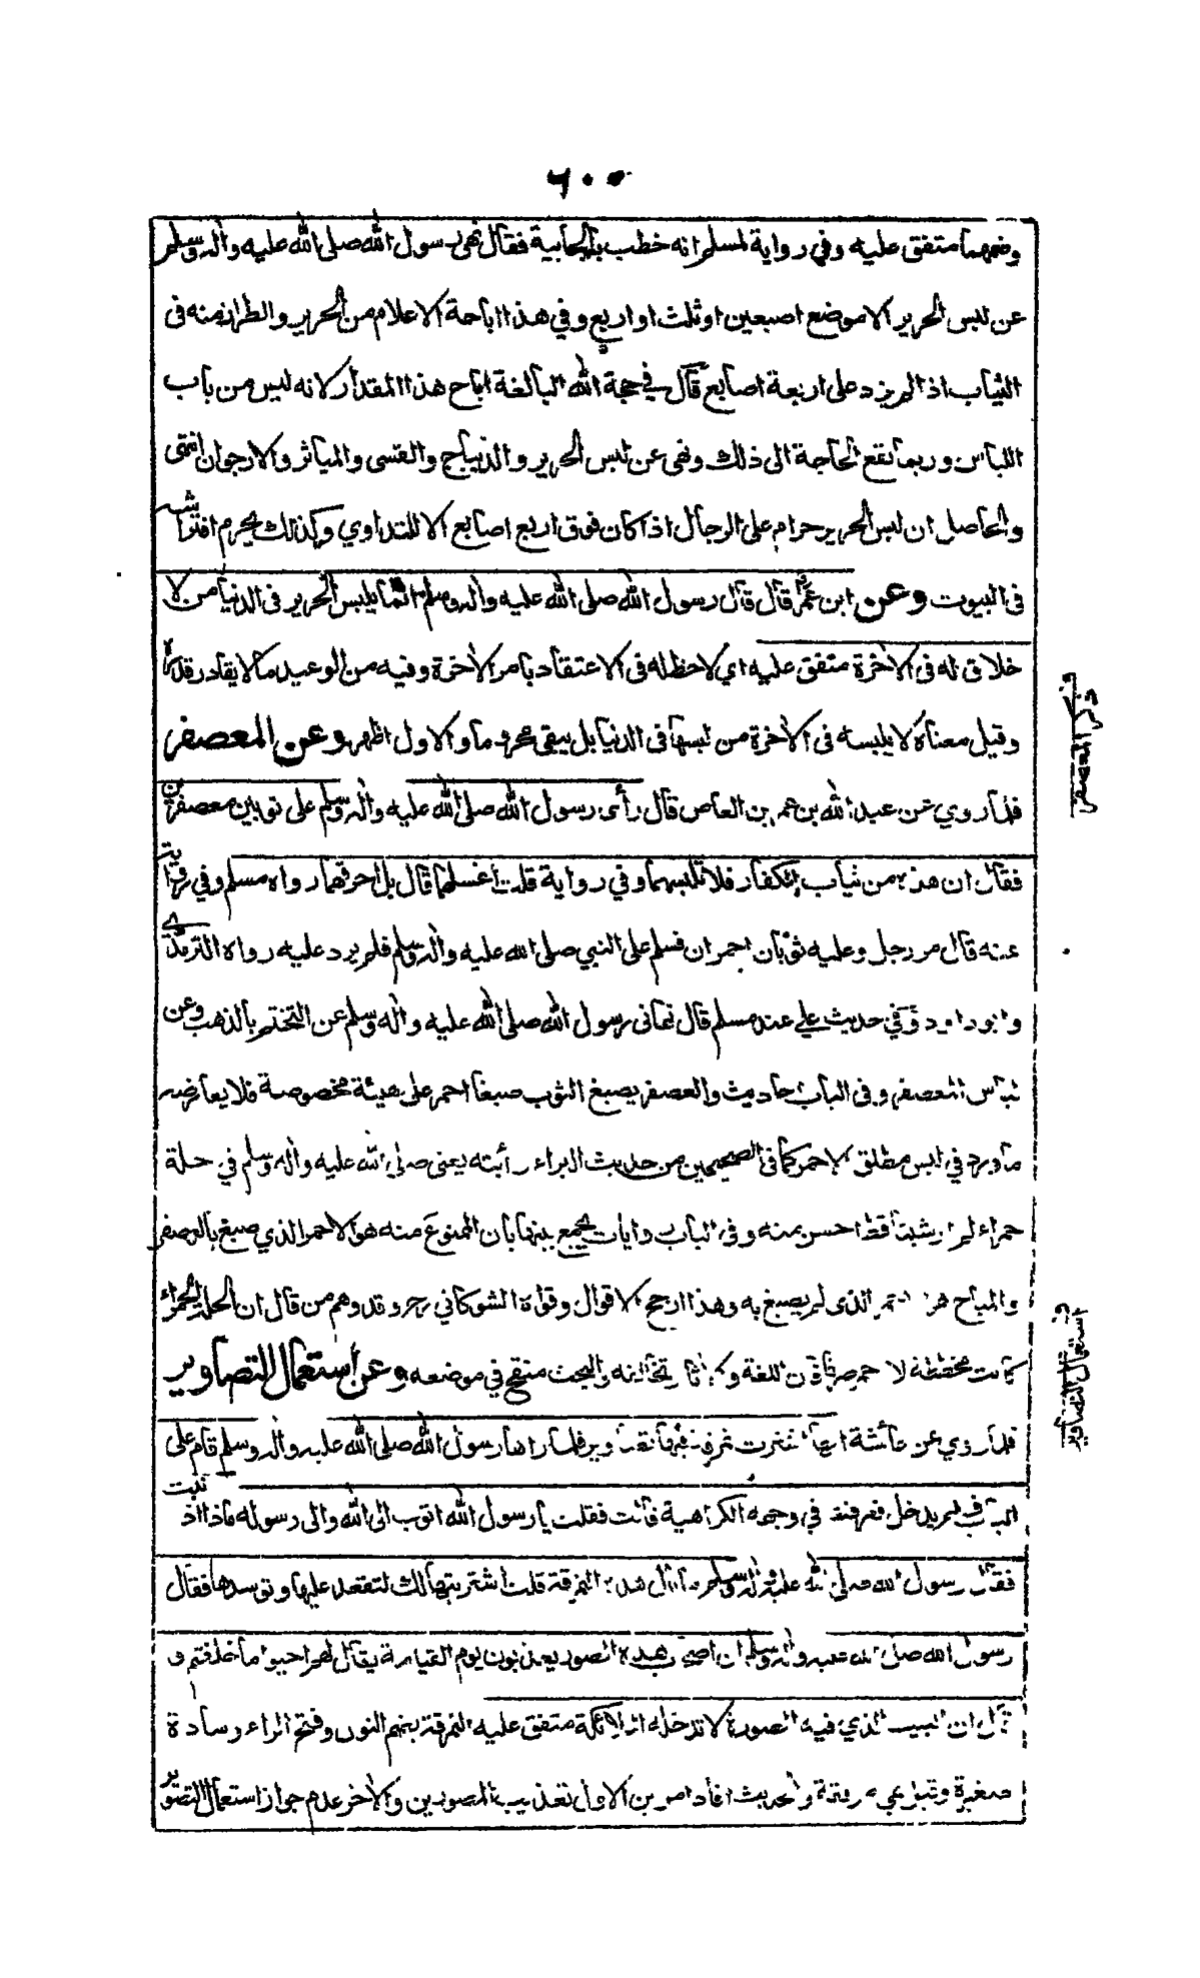 ٦٠٥
وضمهما متفق عليه وفي رواية لمسلم انه خطب بالجابية فقال نهى رسول الله صلى الله عليه واله وسلم
عن لبس الحرير الا موضع اصبعين او ثلث او اربع وفي هذا اباحة الاعلام من الحرير والطراز منه فى
الثياب اذا لم يزد على اربعة اصابع قال في حجة الله البالغة اباح هذا المقدار لانه ليس من باب
اللباس وربما تقع الحاجة الى ذلك ونهى عن لبس الحرير والديباج والقسى والمياثر والارجوان انتهى
والحاصل ان لبس الحرير حرام على الرجال اذا كان فوق اربع اصابع الا للتداوي وكذلك يحرم افتراشه
فى البيوت وعن ابن عمر قال قال رسول الله صلى الله عليه واله وسلم انما يلبس الحرير فى الدنيا من لا
خلاق له فى الاخرة متفق عليه اي لاحظ له فى الاعتقاد بامر الاخرة وفيه من الوعيد ما لا يقادر قدره
وقيل معناه لا يلبسه فى الاخرة من لبسها فى الدنيا بل يبقى محروما والاول اظهر وعن المعصفر
فلما روي عن عبد الله بن عمر بن العاص قال رأى رسول الله صلى الله عليه واله وسلم على ثوبين معصفرين
فقال ان هذه من ثياب الكفار فلا تلبسهما وفي رواية قلت اغسلهما قال بل احرقهما رواه مسلم وفي رواية
عنه قال مر رجل وعليه ثوبان احمران فسلم على النبي صلى الله عليه واله وسلم فلم يرد عليه رواه الترمذي
وابو داود وفي حديث علي عند مسلم قال نهانى رسول الله صلى الله عليه واله وسلم عن التختم بالذهب وعن
لباس المعصفر وفى الباب احاديث والعصفر يصبغ الثوب صبغا احمر على هيئة مخصوصة فلا يعارضه
ما ورد في لبس مطلق الاحمر كما فى الصحيحين من حديث البراء رأيته يعنى صلى الله عليه واله وسلم في حلة
حمراء لم ار شيئا قط احسن منه وفى الباب روايات يجمع بينها بان الممنوع منه هو الاحمر الذي صبغ بالعصفر
والمباح هو الاحمر الذى لم يصبغ به وهذا ارجح الاقوال وقواه الشوكاني رح وقد وهم من قال ان الحلة الحمراء
كانت مخططة لا حمر للغة والبحث منقح في موضعه وعن استعمال التصاوير
فلما روي عن عائشة انها اشترت نمرقة فيها تصاوير فلما راها رسول الله صلى الله عليه واله وسلم قام على
الباب فلم يدخل فعرفت في وجهه الكراهية قالت فقلت يا رسول الله اتوب الى الله والى رسوله ماذا اذنبت
فقال رسول الله صلى الله عليه واله وسلم ما بال هذه النمرقة قلت اشتريتها لك لتقعد عليها وتوسدها فقال
رسول الله صلى الله عليه واله وسلم ان اصحاب هذه الصور يعذبون يوم القيامة يقال لهم احيوا ما خلقتم و
قال ان البيت الذي فيه الصورة لا تدخله الملائكة متفق عليه النمرقة بضم النون وفتح الراء وسادة
صغيرة والحديث افاد امرين الاول تعذيب المصورين والاخر عدم جواز استعمال التصوير
ذكر المعصفر
استعمال التصاوير